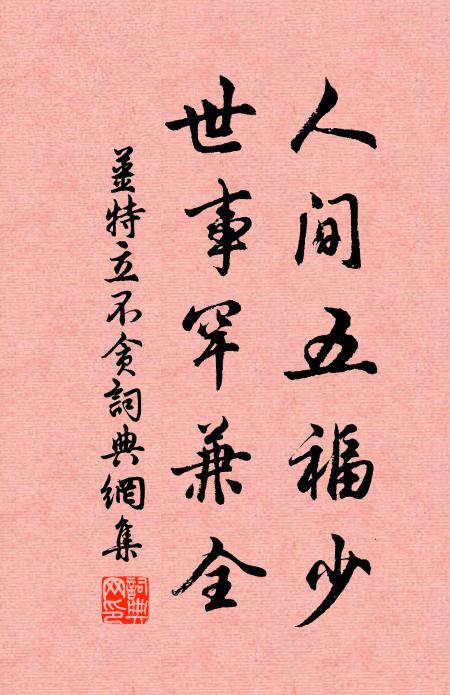 人间五福少
世事罕兼全
姜特立不贪詞典網集
詞典网印